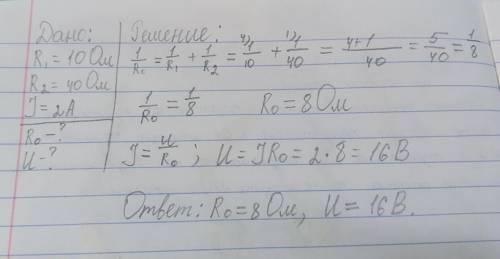 Дано:
R₁ = 10 Ом
R₂ = 40 Ом
I = 2А
R₀ - ?
U - ?
Решение:
1/R₀ = 1/R₁ + 1/R₂ = ⁴⁾1/10 + ¹⁾1/40 = (4+1)/40 = 5/40 = 1/8
1/R₀ = 1/8 R₀ = 8 Ом
I = U/R₀ ; U = IR₀ = 2 · 8 = 16 В
Ответ: R₀ = 8 Ом, U = 16 В.